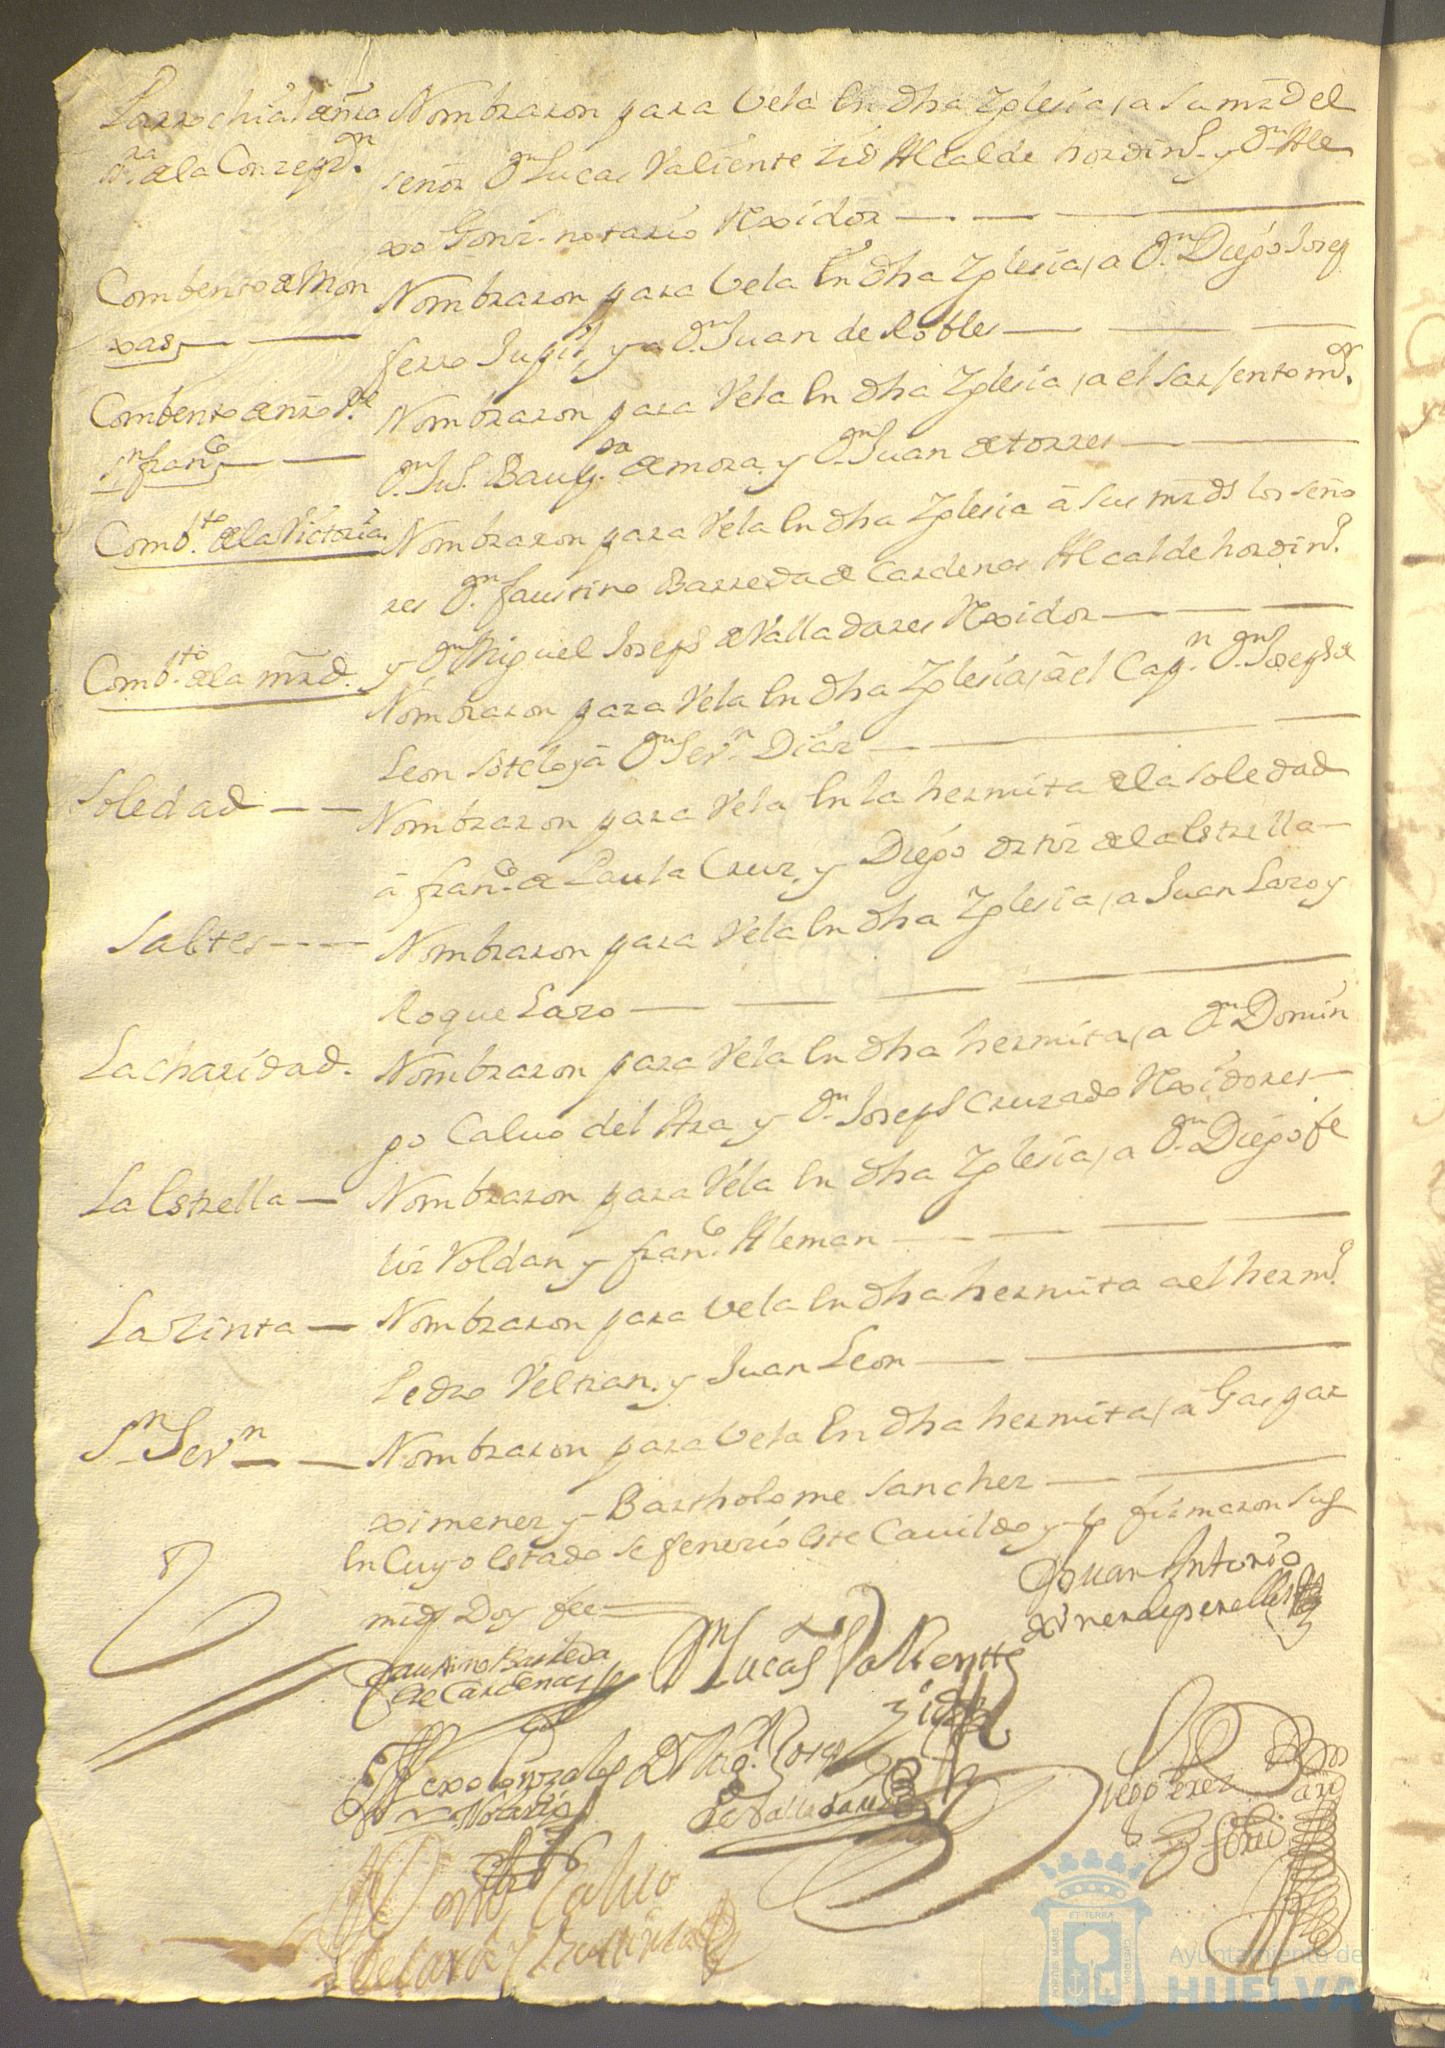 Parrochial de nra Nombraron para Vela En dha Yglesia, a su mrd el
sra. de la Concepon. señor Dn. Lucas Valiente Zid Alcalde hordino. y Dn. Ale
xo Gonz. notario Rexidor
Combento de Mon Nombraron para Vela En dha Yglesia, a Dn. Diego Josep
xas
ferro Jupil, y a Dn. Juan de Robles
Combento de nro Pe. Nombraron para Vela En dha Yglesia, a el Sarjento mor.
Sn. franco
Dn. Ju. Baupta. de mora, y Dn. Juan de torres
Combto. de la Victoria. Nombraron para Vela En dha Yglesia â sus mrds los seño
res Dn. faustino Barreda de Cardenas Alcalde hordino.
y Dn. Miguel Joseph de Valladares Rexidor
Combto. de la mrd. Nombraron para Vela En dha Yglesia, â el Capn. Dn. Joseph de
Leon Sotelo, y â Dn. Sevn. Diaz
Soledad Nombraron para Vela En la hermita de la Soledad
â franco. de Paula Cruz, y Diego ortiz de la Estrella
Saltes Nombraron para Vela En dha Yglesia, a Juan Lazo y
Roque Lazo
La charidad. Nombraron para Vela En dha hermita, a Dn. Domin
go Calvo del Ara y Dn. Joseph Cruzado Rexidores
La Estrella Nombraron para Vela En dha Yglesia, a Dn. Diego fe
liz Roldan y franco. Aleman
La Zinta Nombraron para Vela En dha hermita a el hermo.
Pedro Veltran, y Juan Leon
Sn. Sevn Nombraron para Vela En dha hermita, a Gaspar
ximenez y Bartholome Sanchez
En Cuyo Estado se fenezio Este Cavildo y lo firmaron sus
mrds Doy fee
Juan Antonio
Faustino Barreda
de Cardenas
Dn Lucas Valientte
Zid
Alexo Gonzales
Notario
Dn Migl. Joseph
de Valladares
Diego Perez
Domo Calvo
del ara y
PORTUS MARIS
ET TERRÆ
CUSTODIA
Ayuntamiento de
HUELVA